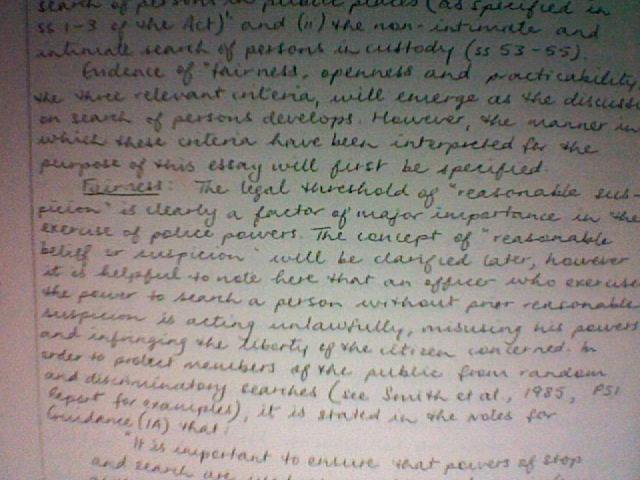 search of persons in public places (as specified in
ss 1-3 of the Act)" and (ii) the non-intimate and
intimate search of persons in custody (ss 53-55).
Evidence of "fairness, openness and practicability,
the three relevant criteria, will emerge as the discuss
on search of persons develops. However, the manner in
which these criteria have been interpreted for the
purpose of this essay will first be specified.
Fairness: The legal threshold of "reasonable sus-
picion" is clearly a factor of major importance in the
exercise of police powers. The concept of "reasonable
belief or suspicion" will be clarified later, however
it is helpful to note here that an officer who exercise
the power to search a person without prior reasonable
suspicion is acting unlawfully, misusing his powers
and infringing the liberty of the citizen concerned. In
order to protect members of the public from random
and discriminatory searches (see Smith et al., 1985, PSI
Report for examples), it is stated in the Notes for
Guidance (1A) that:
"It is important to ensure that powers of stop
and search are